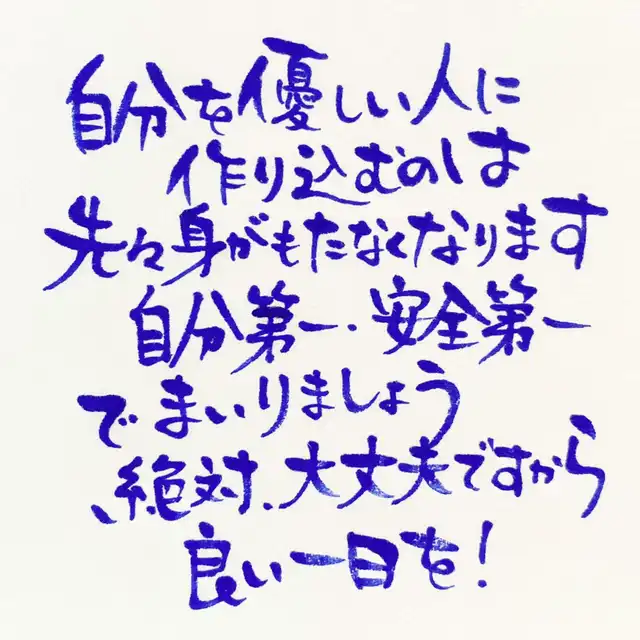 自分を優しい人に
作り込むのは
先々身がもたなくなります
自分第一・安全第一
でまいりましょう
、絶対、大丈夫ですから
良い一日を!